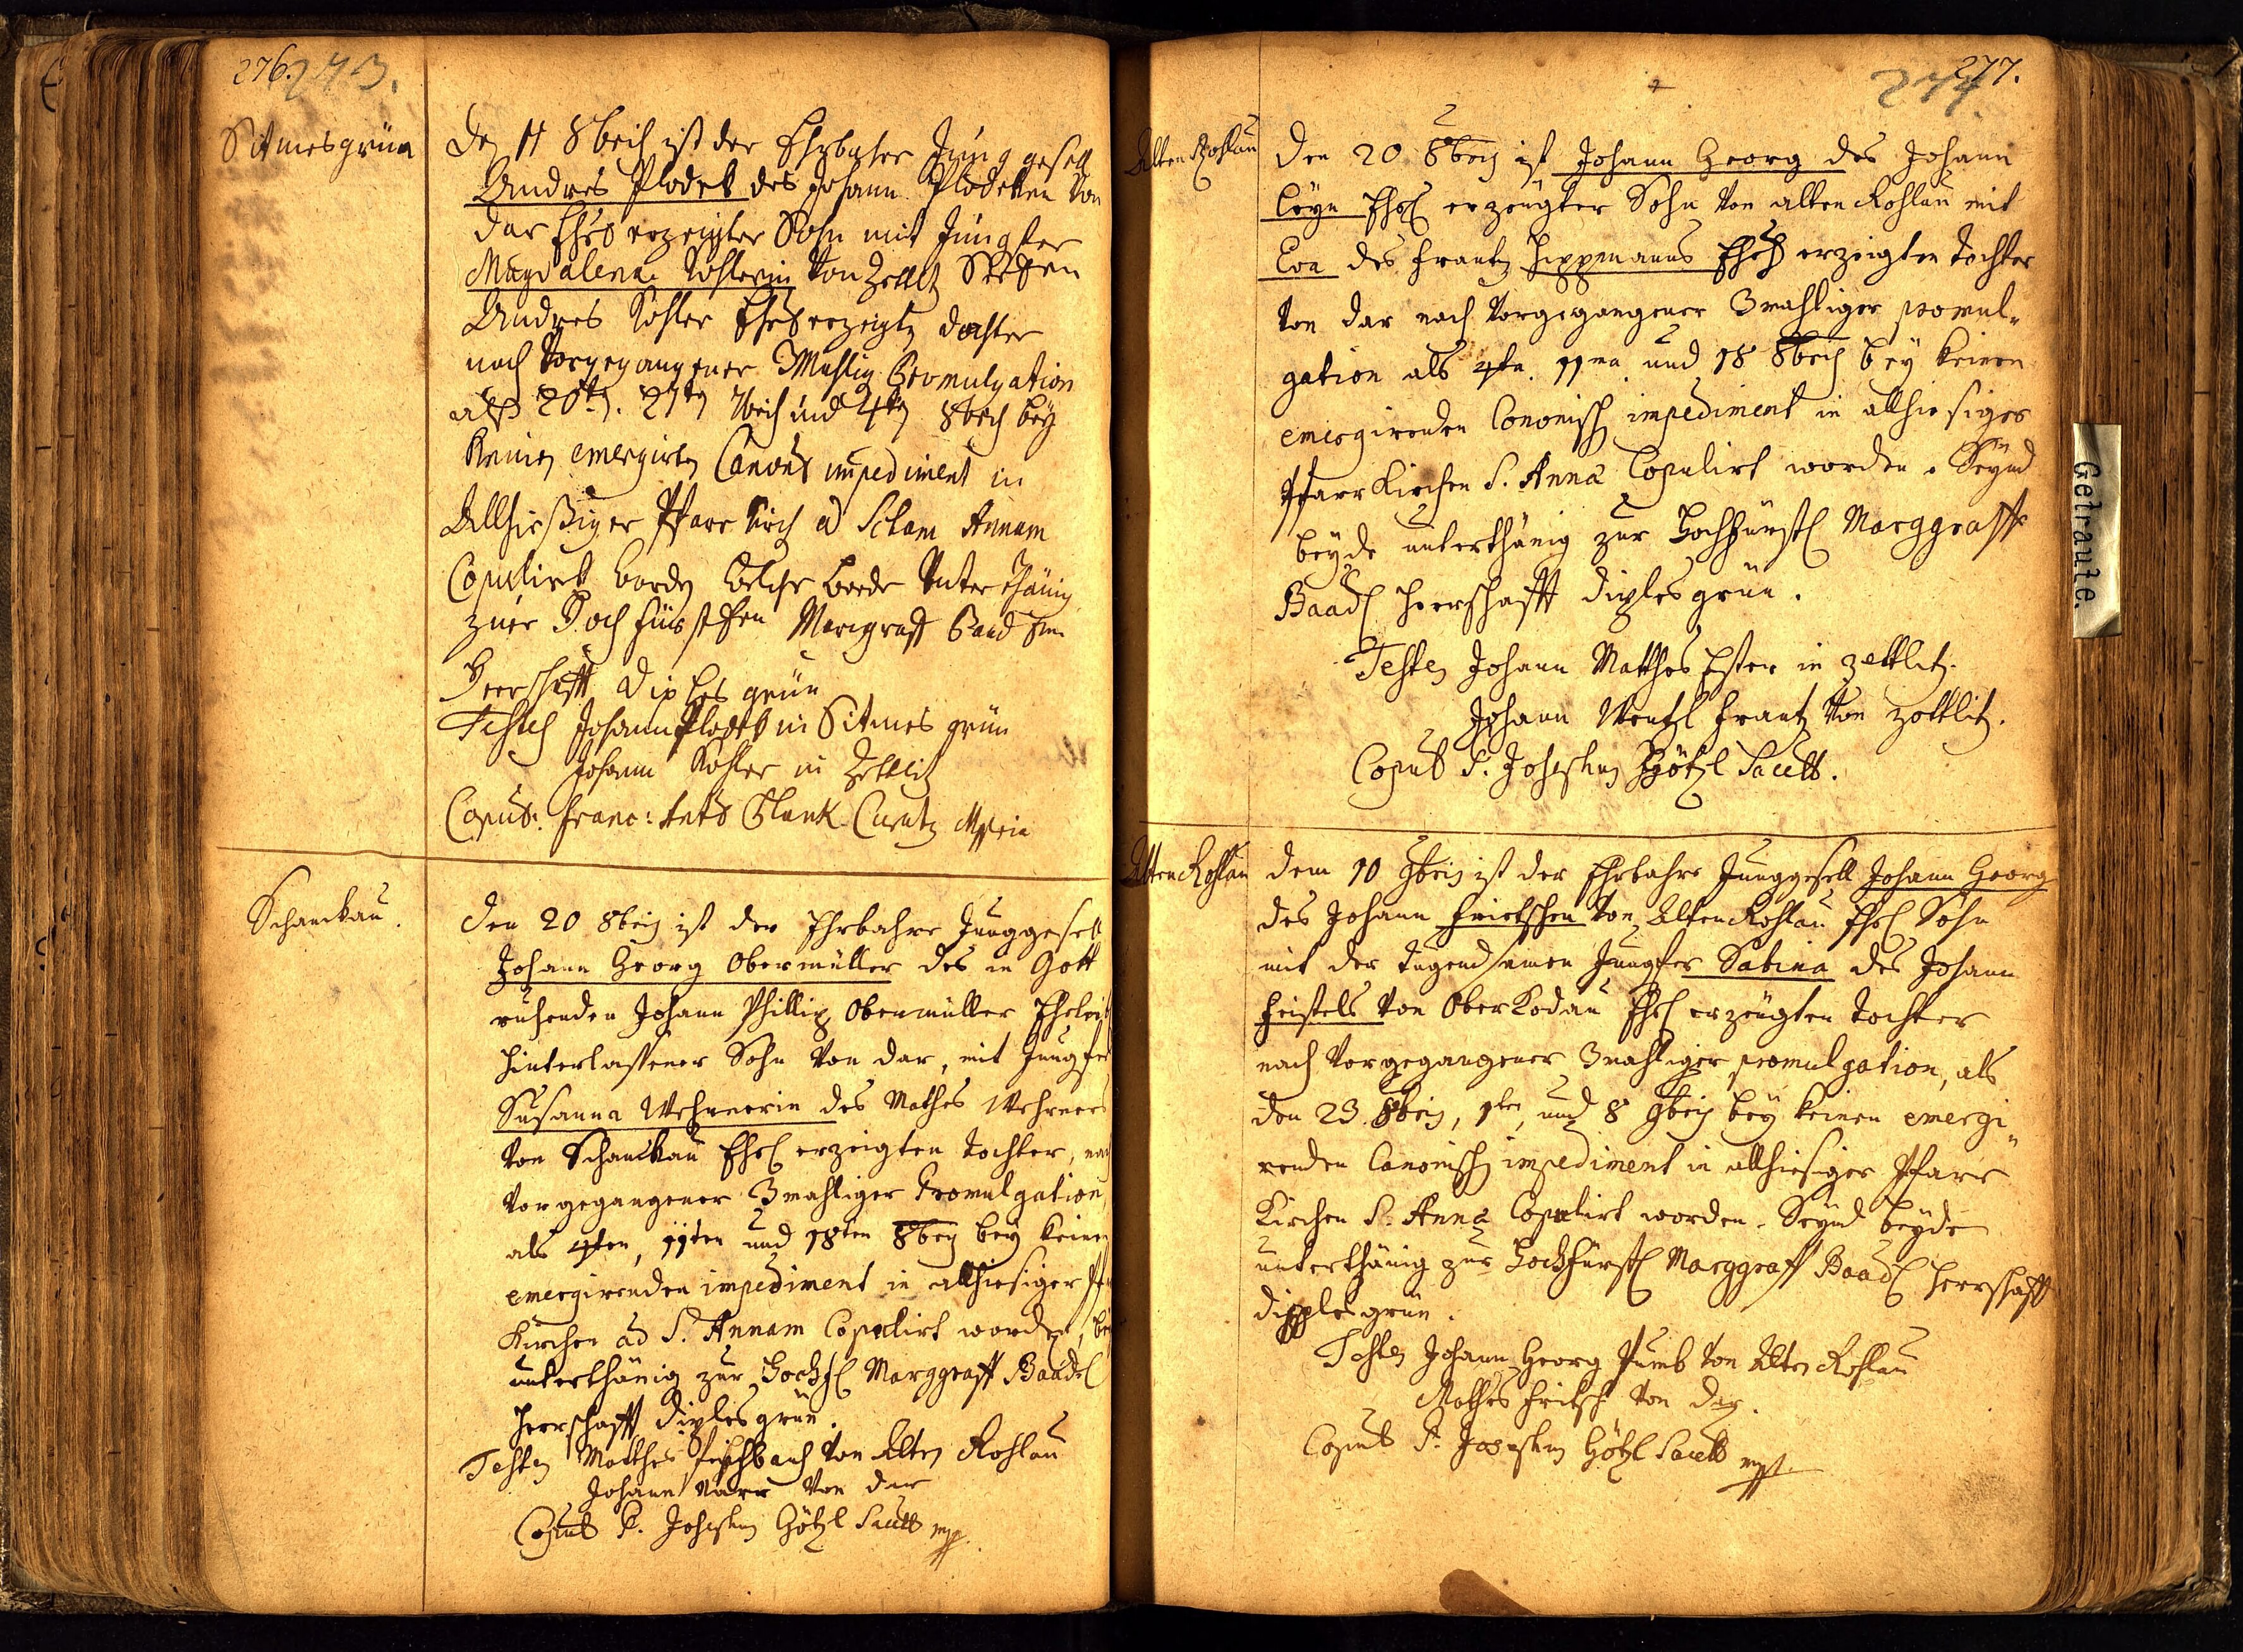 276. 273.
Sitmesgrün
Den 11 8brih ist der Ehrbahre Jung gesell
Andres Plodek des Johann Plodekken von
dar Ehes erzeigter Sohn mit Jungfer
Magdalena Kohlerin von Zettlz
Andres Kohler Ehes erzeigtn dochter
nach vorgegangener 3Mahlig Promulgation
alß 20tn. 27tn 7brih und 4tn 8brih bey
Keinen emergirten Canons impediment in
Allhießiger Pfarr Kirch ad Sctam Annam
Copulirt wordn welche beede Unterthänig
zuer Hochfürstchen Margraff Baad
Herrschafft Diples grün
Testes Johann Plodek in Sitmes grün
Johann Kohler in Zettlitz
Copus: Franc: Ants Blank Curatg Mppria
Schanckau.
Den 20 8bris ist der Ehrbahre Junggesell
Johann Georg Obermüller des in Gott
ruhenden Johann Phillip Obermüller
hinterlassener Sohn von dar, mit Jungfer
Susanna Wehrnerin des Mathes Wehrners
von Schanckau Ehel erzeigten tochter, nach
vorgegangener 3mahliger Promulgation
als 4ten, 11ten und 18ten 8bris bey keinen
emergirenden impediment in allhiesiger
Kirchen ad S. Annam Copulirt worden,
unterthänig zur Hochfl Marggraff Baadl
Herrschafft diplesgrün.
Testes Matthes von Alten Rohlau
Johann Narr von dar
Copult P. Josephus Götzl Sacells mp.
277. 274.
Alten Rohlau
Den 20 8bris ist Johann Georg des Johann
Leyn Ehel erzeugter Sohn von alten Rohlau mit
Eva des Frantz Hippmanns Ehel erzeigten tochter
von dar nach vorgegangener 3mahliger promul-
gation als 4ta. 11ma und 18 8bris bey keinen
emergirenden Cononisch impediment in allhiesiger
PfarrKirchen S. Anna Copulirt worden. Seynd
beyde unterthänig zur Hochfürstl Marggraff
Baadl Herrschafft diplesgrün.
Testes Johann Matthes Ester in zettlitz.
Johann Wentzl Frantz von zettlitz.
Copult P. Josephus Götzl Sacells.
Alten Rohlau
dem 10 9bris ist der Ehrbahre Junggesell Johann Georg
des Johann Frietschen von Alten Rohlau Ehel Sohn
mit der tugendsamen Jungfer Sabina des Johann
Heistels von OberKodau Ehel erzeugten tochter
nach vorgegangener 3mahliger promulgation, als
den 23. 8bris, 1ten, und 8 9bris bey keinen emergi-
renden Canonisch impediment in allhiesiger Pfarr
Kirchen S. Anna Copulirt worden. Seynd beyde
unterthänig zur Hochfürstl Marggraff Baadl Herrschafft
dipplesgrün.
Testes Johann Georg Pumb von Alten Rohlau
Mathes Fritsch von dar.
Copult P. Josephus Götzl Sacells mp.
Getraute.